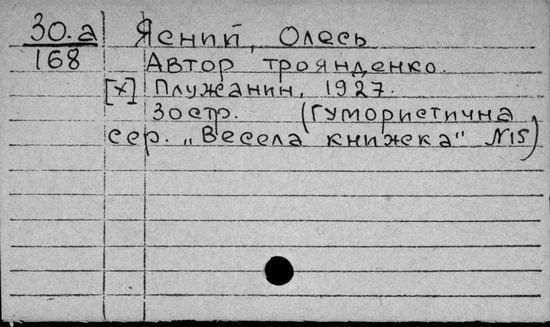 30.а Ясний, Олесь
168 Автор трояндeнко.
[x] Плужанин, 1927.
30стр. (Гумористична
сер. „Весела книжка" №15)